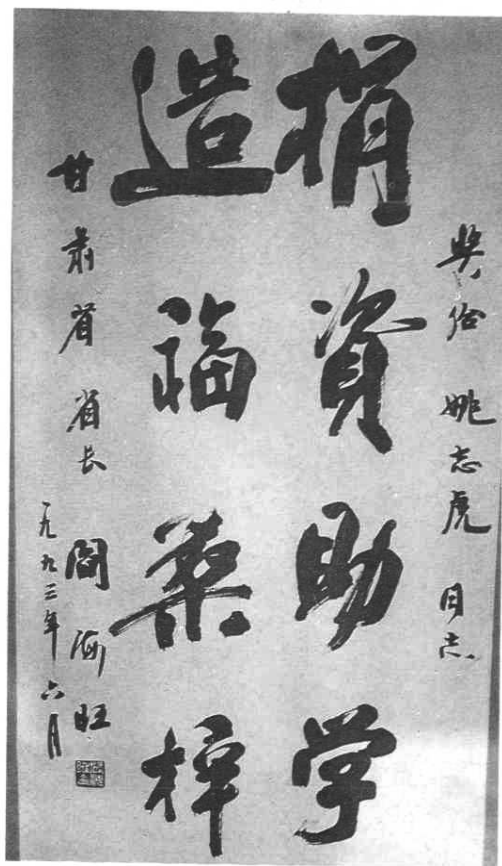 奖给姚志虎同志
捐资助学
造福桑梓
甘肃省省长阎海旺
一九九三年六月